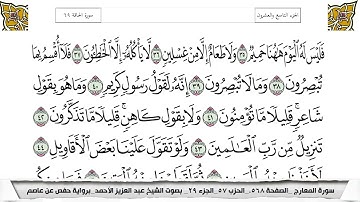 الجزء التاسع والعشرون
سورة الحاقة ٦٩
فَلَيْسَ لَهُ الْيَوْمَ هَاهُنَا حَمِيمٌ ٣٥ وَلَا طَعَامٌ إِلَّا مِنْ غِسْلِينٍ ٣٦ لَّا يَأْكُلُهُ إِلَّا الْخَاطِئُونَ ٣٧ فَلَا أُقْسِمُ بِمَا
تُبْصِرُونَ ٣٨ وَمَا لَا تُبْصِرُونَ ٣٩ إِنَّهُ لَقَوْلُ رَسُولٍ كَرِيمٍ ٤٠ وَمَا هُوَ بِقَوْلِ
شَاعِرٍ ۚ قَلِيلًا مَّا تُؤْمِنُونَ ٤١ وَلَا بِقَوْلِ كَاهِنٍ ۚ قَلِيلًا مَّا تَذَكَّرُونَ ٤٢
تَنزِيلٌ مِّن رَّبِّ الْعَالَمِينَ ٤٣ وَلَوْ تَقَوَّلَ عَلَيْنَا بَعْضَ الْأَقَاوِيلِ ٤٤
سورة المعارج _الصفحة ٥٦٨_ الحزب ٥٧_الجزء ٢٩_ بصوت الشيخ عبد العزيز الاحمد_برواية حفص عن عاصم